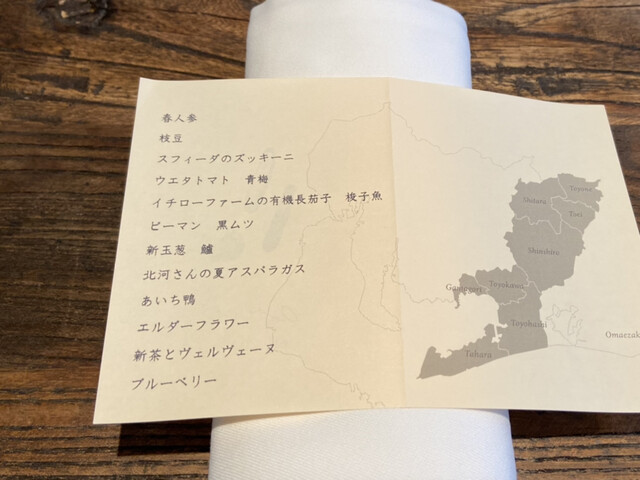 春人参
枝豆
スフィーダのズッキーニ
ウエタトマト 青梅
イチローファームの有機長茄子 梭子魚
ピーマン 黒ムツ
新玉葱 鱸
北河さんの夏アスパラガス
あいち鴨
エルダーフラワー
新茶とヴェルヴェーヌ
ブルーベリー
Toyone
Shitara
Toei
Shinshiro
Gamagori
Toyokawa
Toyohashi
Tahara
Omaezak